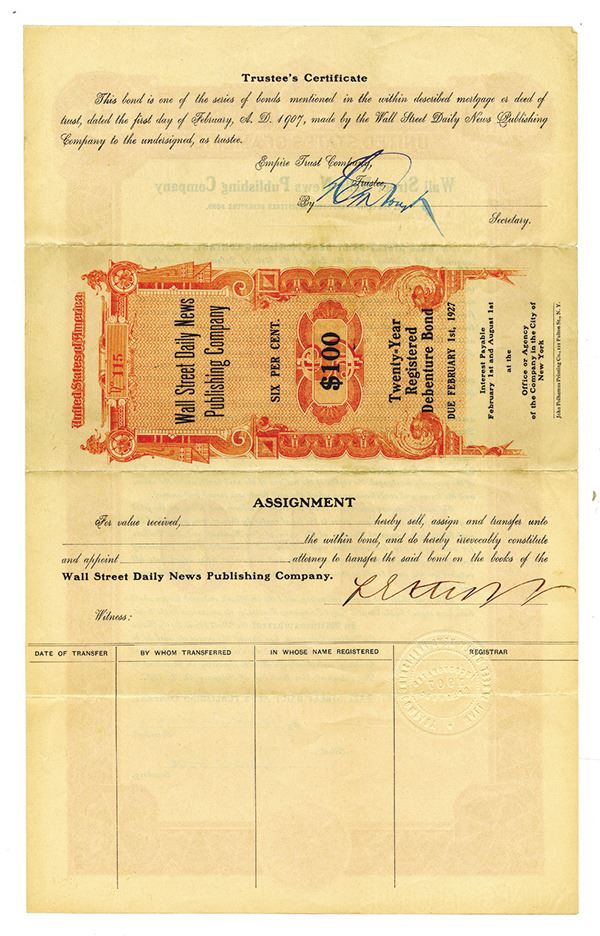 Trustee's Certificate
This bond is one of the series of bonds mentioned in the within described mortgage or deed of
trust, dated the first day of February, A. D. 1907, made by the Wall Street Daily News Publishing
Company to the undersigned, as trustee.
Empire Trust Company,
Trustee,
By
Secretary.
United States of America
No 115
Wall Street Daily News
Publishing Company
SIX PER CENT.
$100
Twenty-Year
Registered
Debenture Bond
DUE FEBRUARY 1st, 1927
Interest Payable
February 1st and August 1st
at the
Office or Agency
of the Company in the City of
New York
John Polhemus Printing Co., 121 Fulton St., N. Y.
ASSIGNMENT
For value received, hereby sell, assign and transfer unto
the within bond, and do hereby irrevocably constitute
and appoint attorney to transfer the said bond on the books of the
Wall Street Daily News Publishing Company.
Witness:
DATE OF TRANSFER BY WHOM TRANSFERRED IN WHOSE NAME REGISTERED REGISTRAR